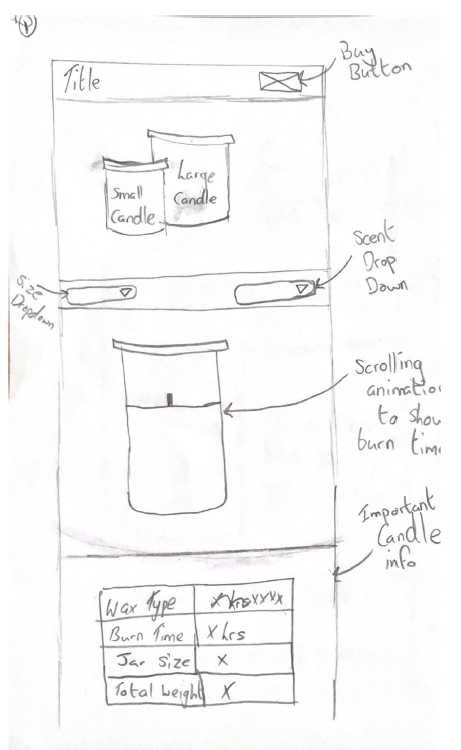 Title
Buy
Button
Small
Candle
Large
Candle
Scent
Drop
Down
Size
Dropdown
Scrolling
animatio
to show
burn time
Important
Candle
info
Wax Type
Burn Time X hrs
Jar Size X
Total weight X